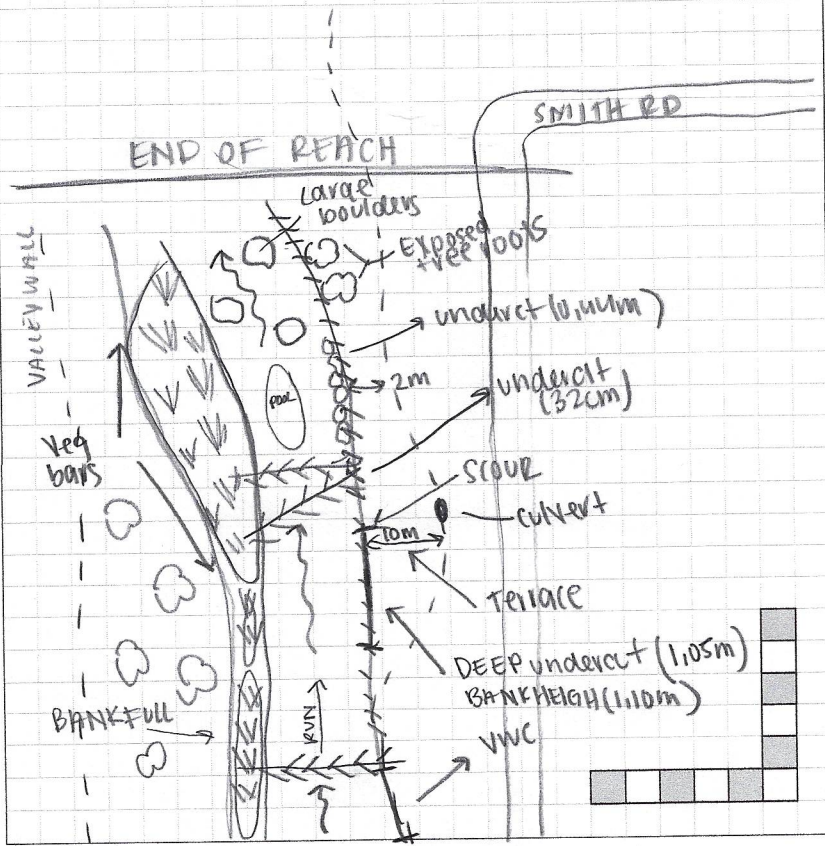 SMITH RD
END OF REACH
Large
boulders
Exposed
tree roots
VALLEY WALL
undercut (0,44m)
2m
undercut
(32cm)
POOL
Veg
bars
SCOUR
culvert
10m
Terrace
DEEP undercut (1,05m)
BANKHEIGH (1,10m)
BANKFULL
RUN
VWC